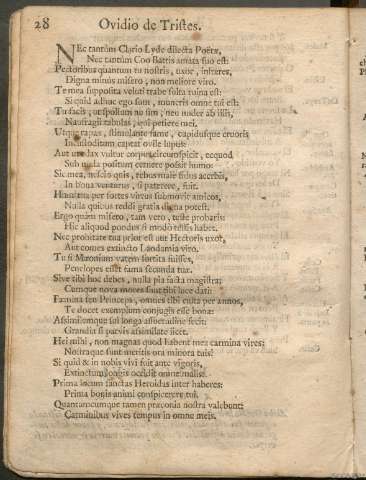 28 Ovidio de Tristes.
NEc tantùm Clario Lyde dilecta Poëtæ,
Nec tantùm Coo Battis amata suo est:
Pectoribus quantum tu nostris, uxor, inhæres,
Digna minùs misero, non meliore viro.
Te mea supposita veluti trabe fulta ruina est:
Si quid adhuc ego sum, muneris omne tui est:
Tu facis, ut spolium ne sim, neu nuder ab illis,
Naufragii tabulas, qui petiere mei.
Utque rapax, stimulante fame, cupidusque cruoris
Incustoditum captat ovile lupus:
Aut ut edax vultur corpus circumspicit, ecquod
Sub nulla positum cernere possit humo:
Sic mea, nescio quis, rebus malè fidus acerbis,
In bona venturus, si paterere, fuit.
Hunc tua per fortes virtus submovit amicos,
Nulla quibus reddi gratia digna potest.
Ergo quàm misero, tam vero, teste probaris:
Hic aliquod pondus si modò testis habet.
Nec probitate tua prior est aut Hectoris uxor,
Aut comes extincto Laodamia viro.
Tu si Mæonium vatem sortita fuisses,
Penelopes esset fama secunda tuæ.
Sive tibi hoc debes, nulla pia facta magistra:
Cumque nova mores sunt tibi luce dati:
Fœmina seu Princeps, omnes tibi culta per annos,
Te docet exemplum conjugis esse bonæ:
Assimilemque sui longa assuetudine fecit:
Grandia si parvis assimilare licet.
Hei mihi, non magnas quod habent mea carmina vires;
Nostraque sunt meritis ora minora tuis!
Si quid & in nobis vivi fuit ante vigoris,
Extinctum longis occidit omne malis.
Prima locum sanctas Heroidas inter haberes:
Prima bonis animi conspicerere tui.
Quantumcumque tamen præconia nostra valebunt:
Carminibus vives tempus in omne meis.